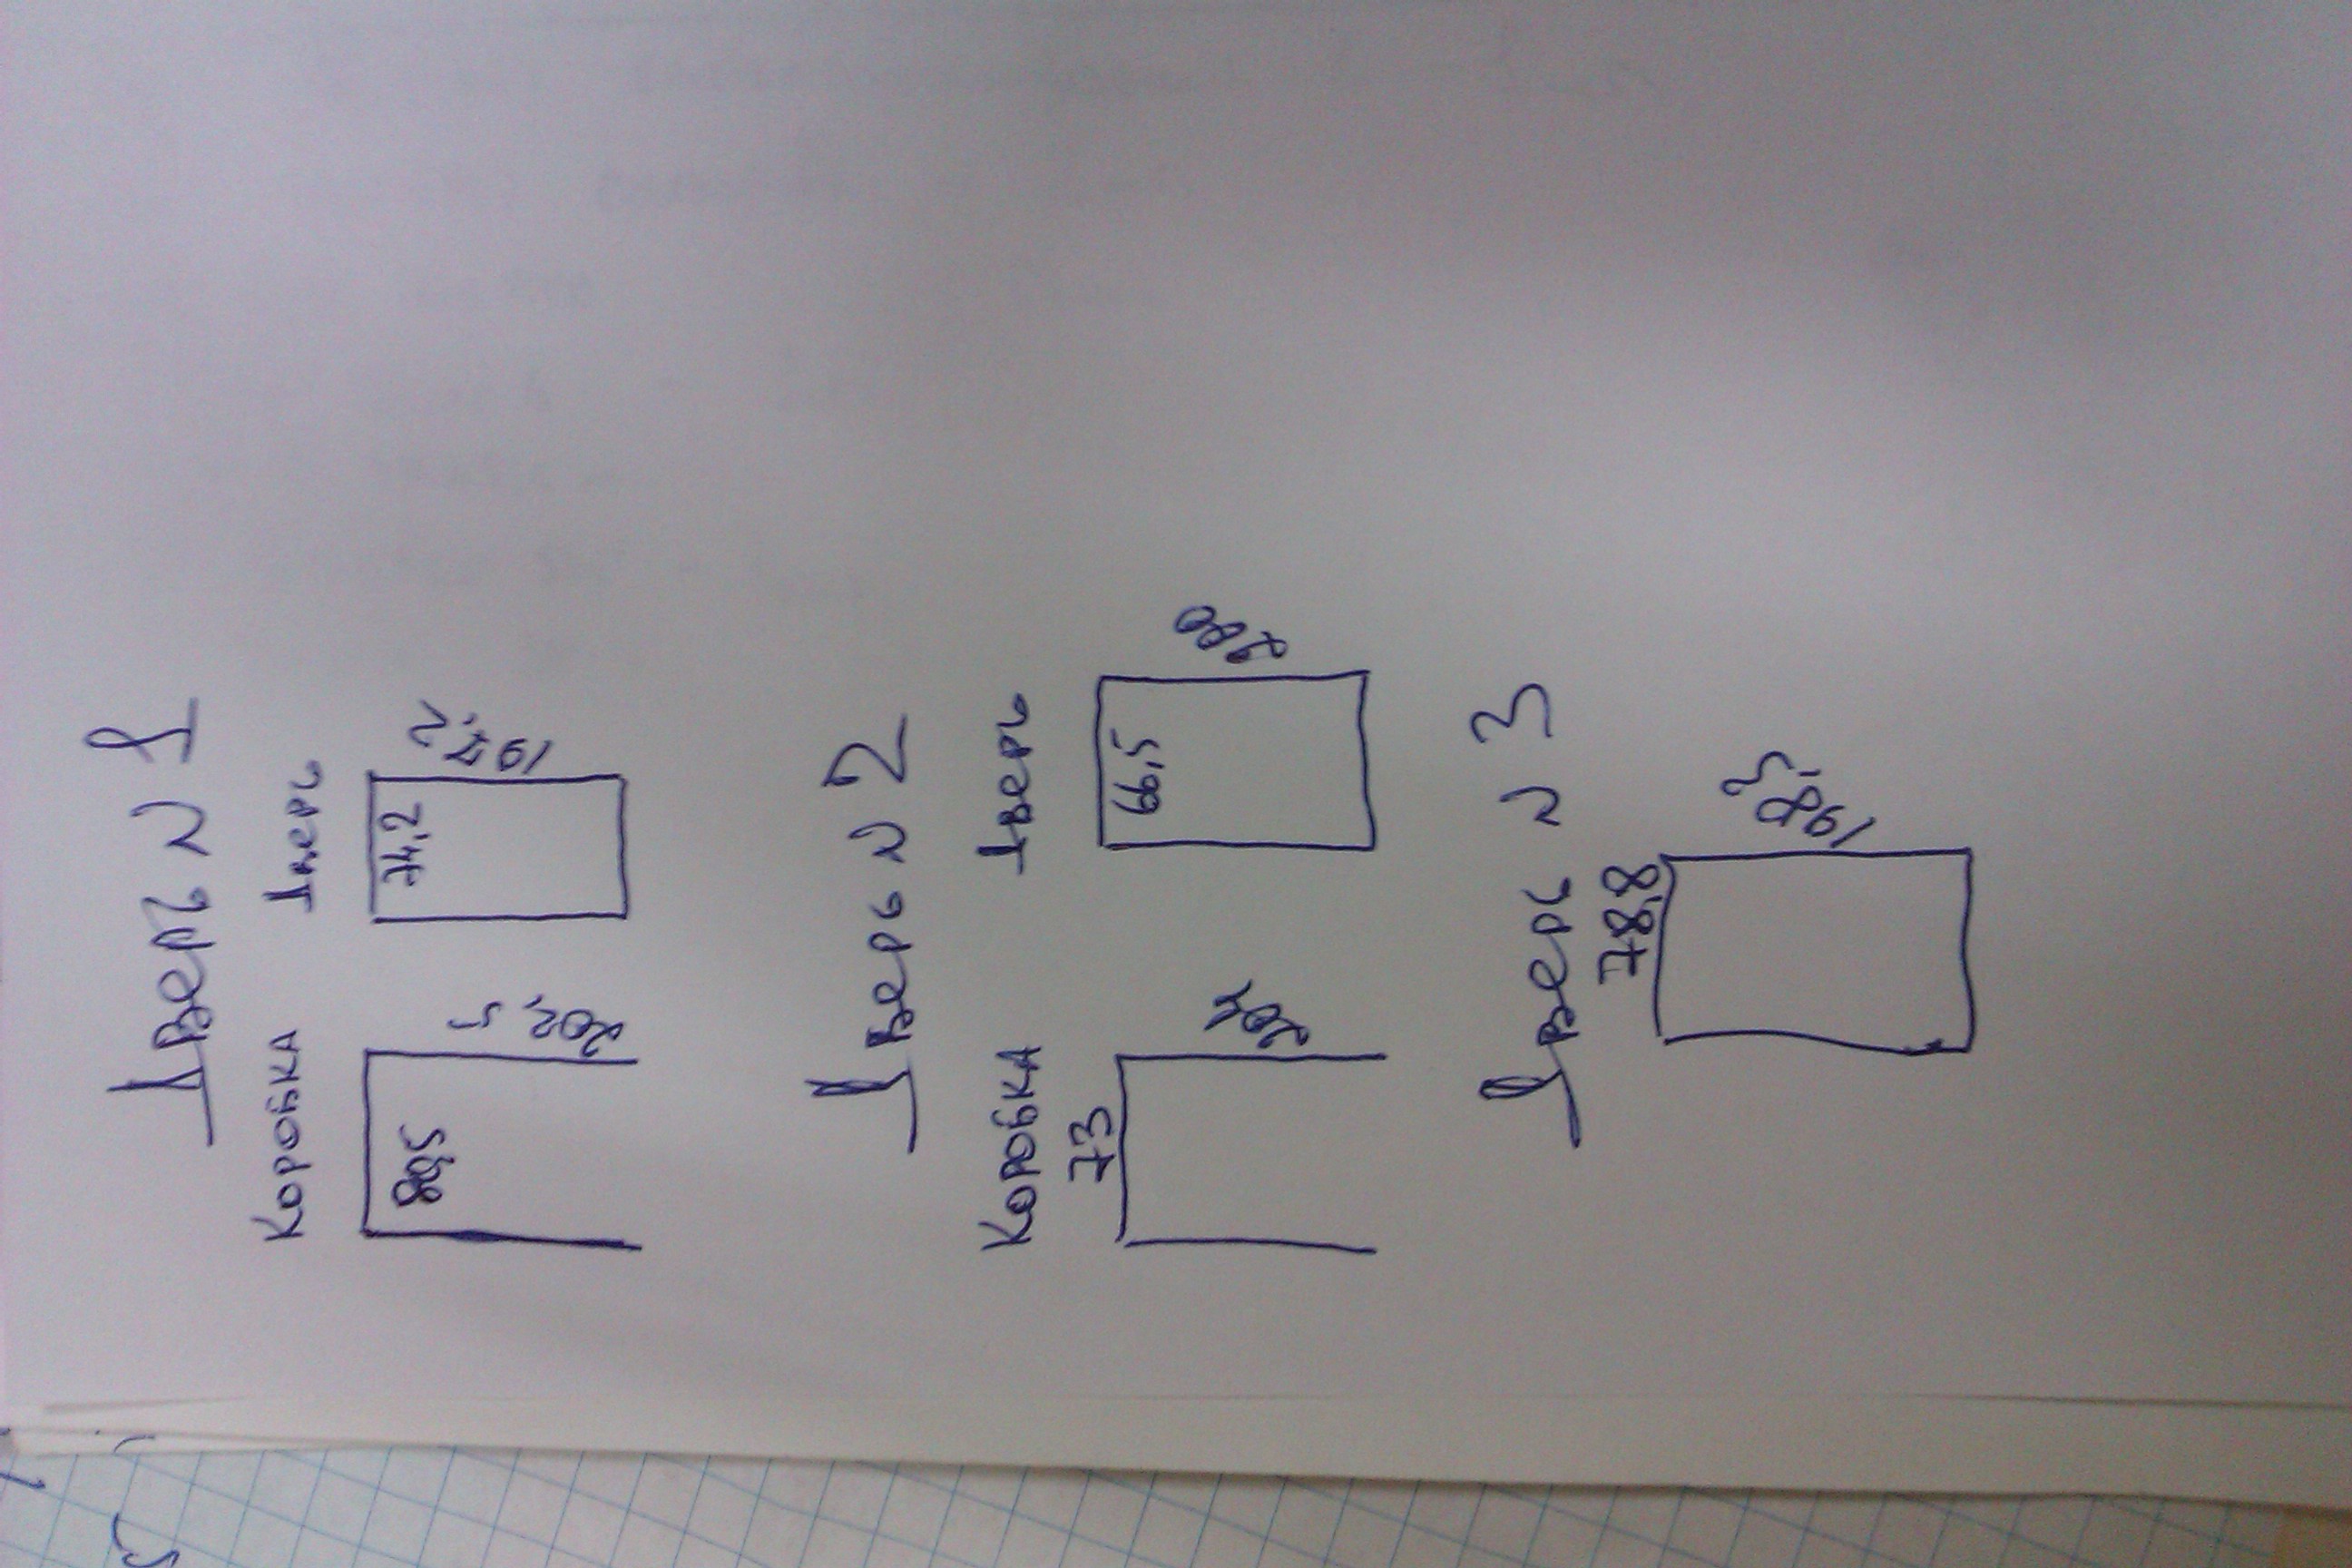 Дверь N 1
Коробка Дверь
80,5 202,5 74,2 197,2
Дверь N 2
Коробка Дверь
73 204 66,5 200
Дверь N 3
78,8 198,5